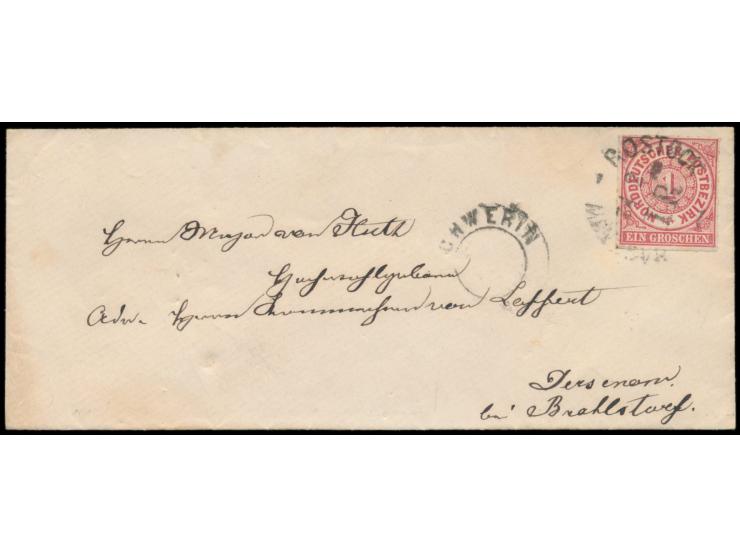 ROSTOCK
NORDDEUTSCHER POSTBEZIRK
1
EIN GROSCHEN
SCHWERIN
Herrn Major von Fluth
Hochwohlgeboren
Adr. Herrn Kammerherrn von Leppert
Dersenow.
bei Brahlstorf.